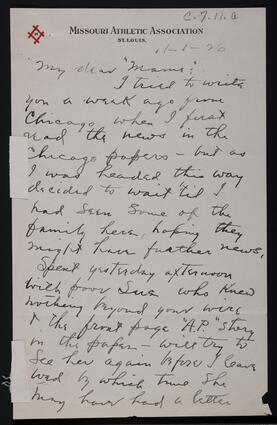 C.7.11.a
MISSOURI ATHLETIC ASSOCIATION
ST. LOUIS.
11-1-26
"My dear "Mame":
I tried to write
you a week ago from
Chicago when I first
read the news in the
Chicago papers - but as
I was headed this way
decided to wait 'til I
had seen some of the
family here, hoping they
might have further news.
Spent yesterday afternoon
with poor Sue who knew
nothing beyond your wire
& the front page "A.P." story
in the papers - will try to
see her again before I leave
Wed by which time she
may have had a letter